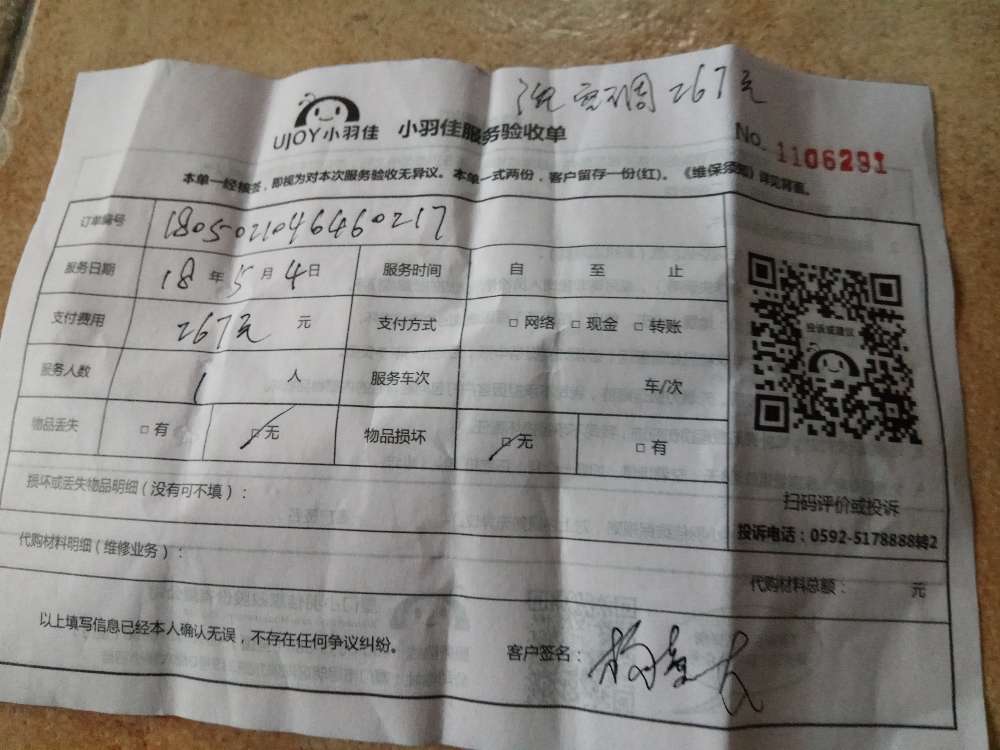 洗空调267元
UJOY小羽佳 小羽佳服务验收单
No. 1106291
本单一经核签，即视为对本次服务验收无异议。本单一式两份，客户留存一份(红)。《维保须知》详见背面。
订单编号 1805021046460217
服务日期 18年5月4日 服务时间 自 至 止
支付费用 267元 元 支付方式 □网络 □现金 □转账
投诉或建议
服务人数 1 人 服务车次 车/次
物品丢失 □有 □无 物品损坏 □无 □有
损坏或丢失物品明细（没有可不填）：
扫码评价或投诉
投诉电话：0592-5178888转2
代购材料明细（维修业务）：
代购材料总额： 元
以上填写信息已经本人确认无误，不存在任何争议纠纷。
客户签名：